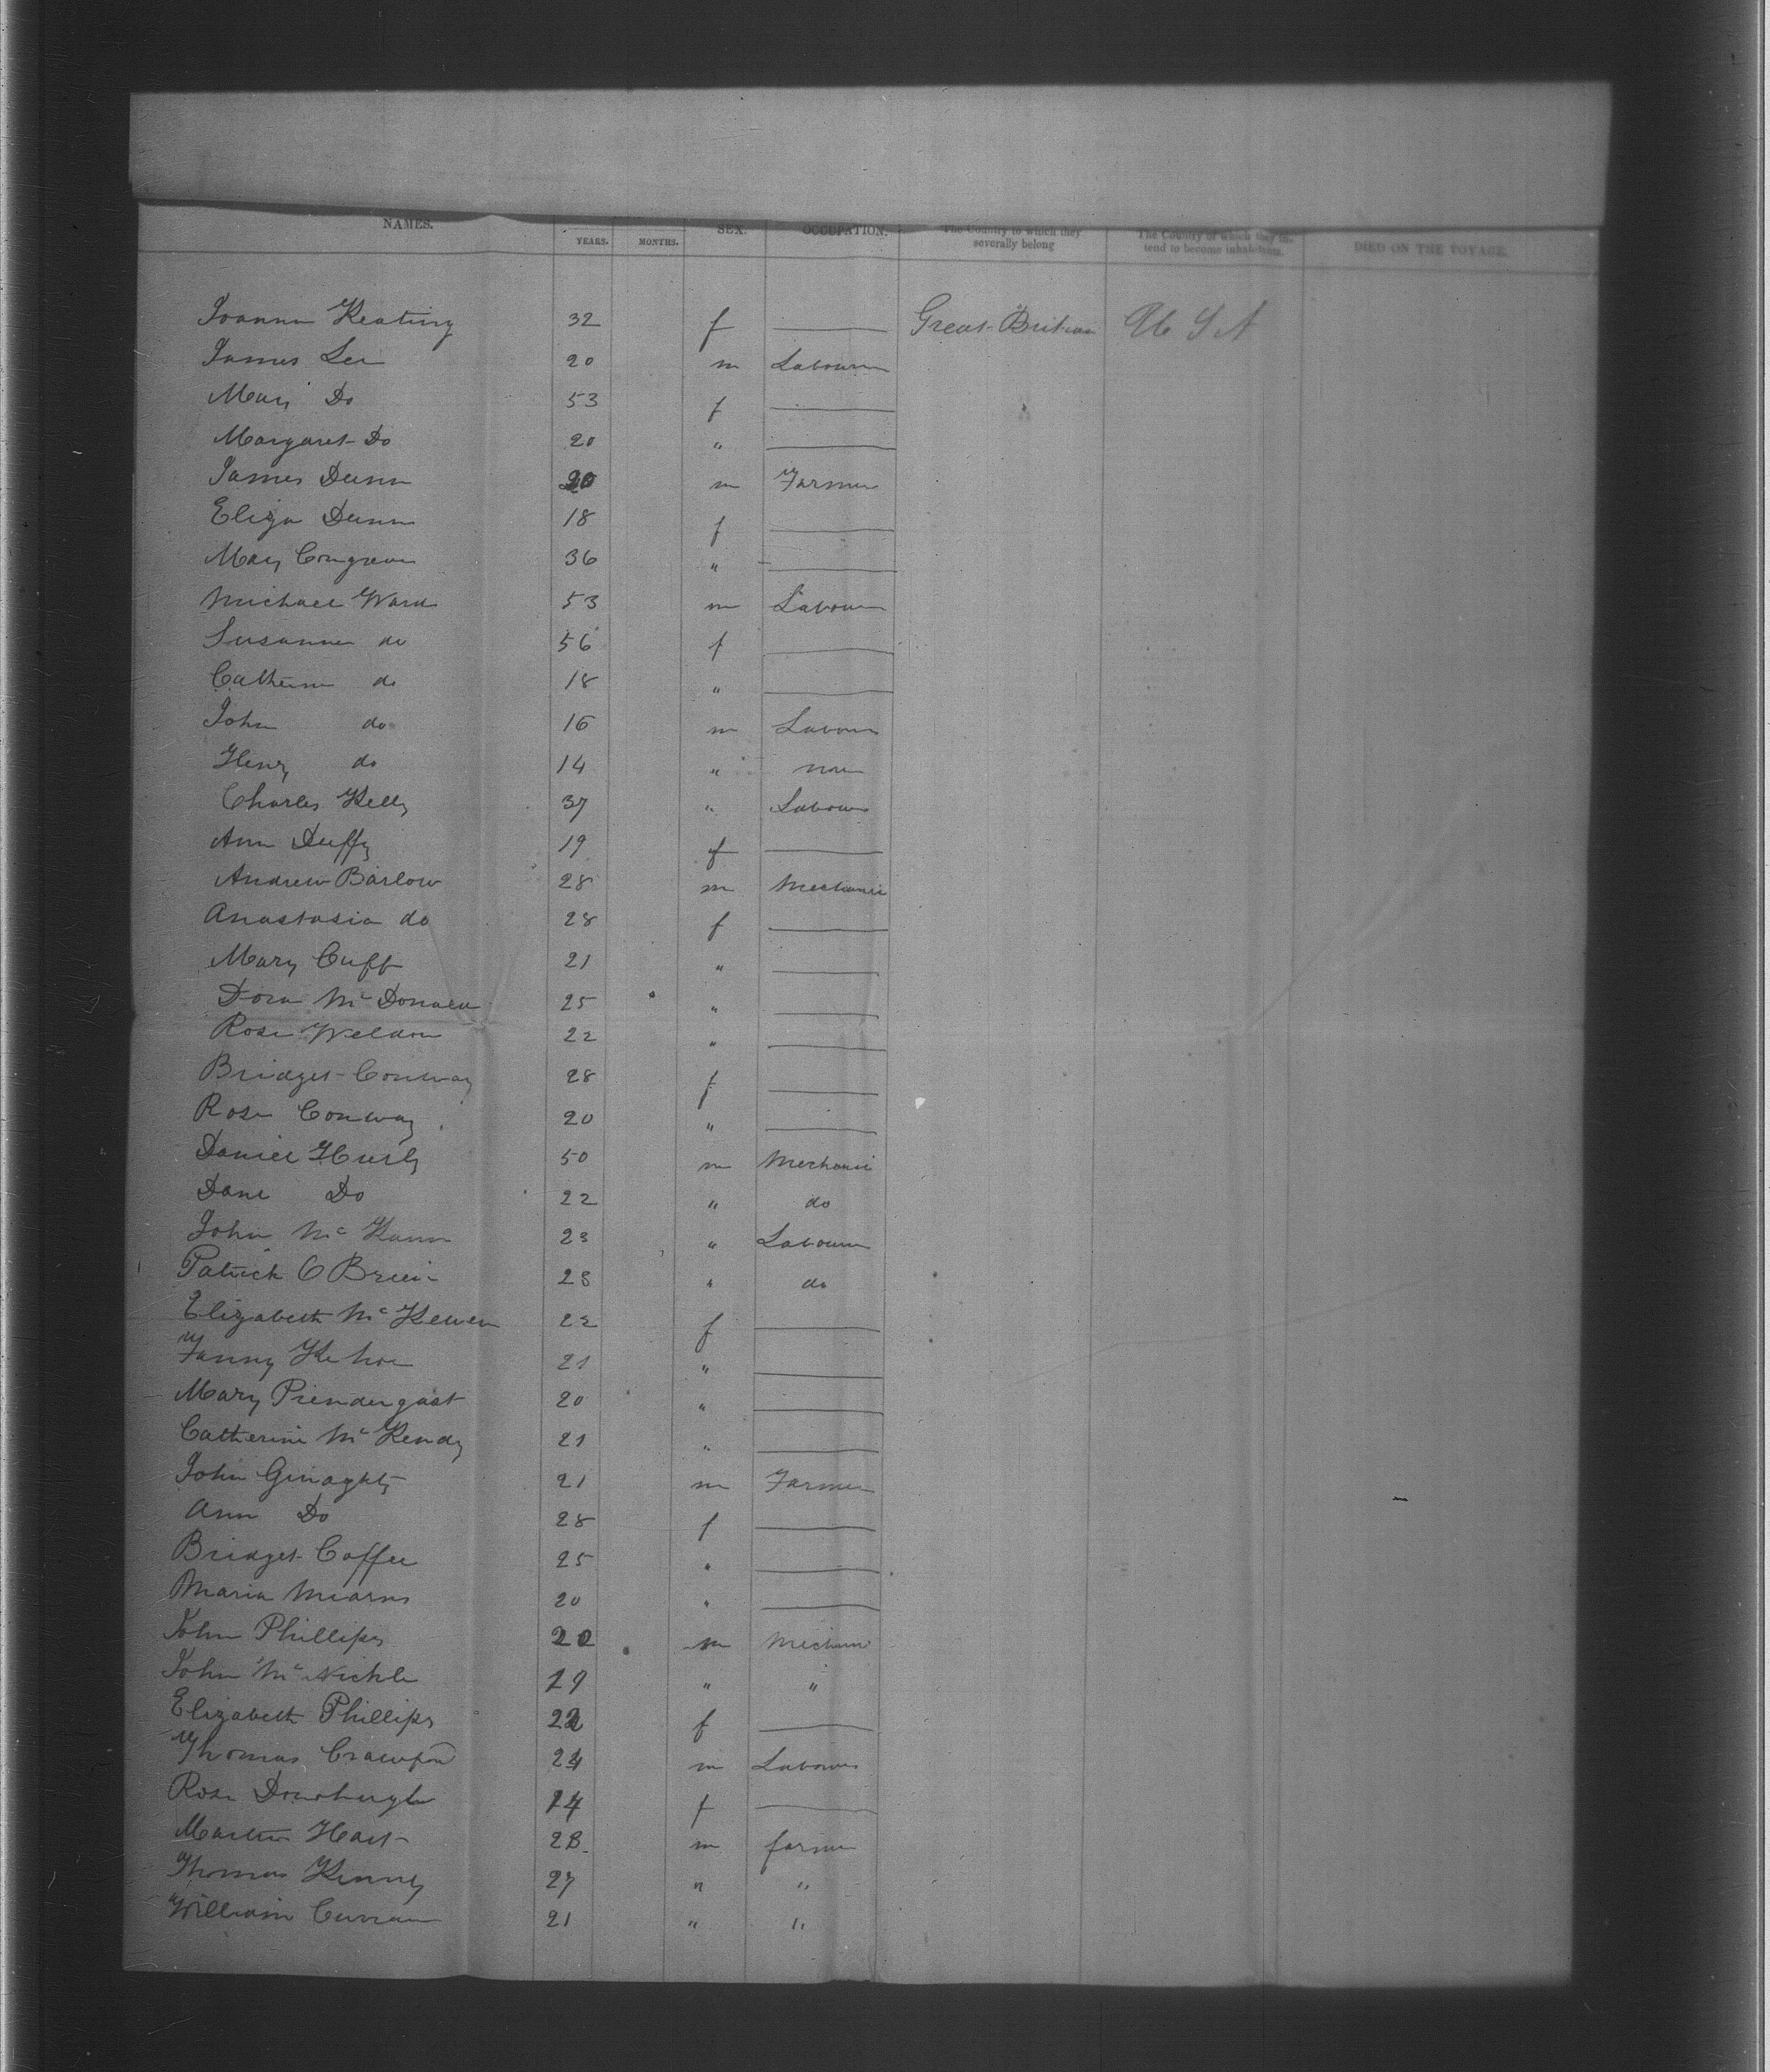 NAMES. YEARS. MONTHS. SEX. OCCUPATION. The Country to which they severally belong The Country of which they intend to become inhabitants. DIED ON THE VOYAGE.
Joanna Keating 32 f Great Britain U S A
James Lee 20 m Labourer
Mary Do 53 f
Margaret Do 20 "
James Dunn 20 m Farmer
Eliza Dunn 18 f
Mary Congreve 36 "
Michael Ward 53 m Labourer
Susanna do 56 f
Catherine do 18 "
John do 16 m Labourer
Henry do 14 " none
Charles Kelly 37 " Labourer
Ann Duffy 19 f
Andrew Barlow 28 m Mechanic
Anastasia do 28 f
Mary Cuff 21 "
Dora McDonald 25 "
Rose Weldon 22 "
Bridget Conway 28 f
Rose Conway 20 "
Daniel Hurly 50 m Mechanic
Dane Do 22 " do
John McKann 23 " Labourer
Patrick O Brien 28 " do
Elizabeth McKewen 22 f
Fanny Kehoe 21 "
Mary Prendergast 20 "
Catherine McKendy 21 "
John Ginaghty 21 m Farmer
Ann Do 28 f
Bridget Coffee 25 "
Maria Mearns 20 "
John Phillips 22 m Mechanic
John McNickle 19 " "
Elizabeth Phillips 22 f
Thomas Crawford 24 m Labourer
Rose 14 f
Martin Hart 28 m farmer
Thomas Kenny 27 " "
William Curran 21 " "